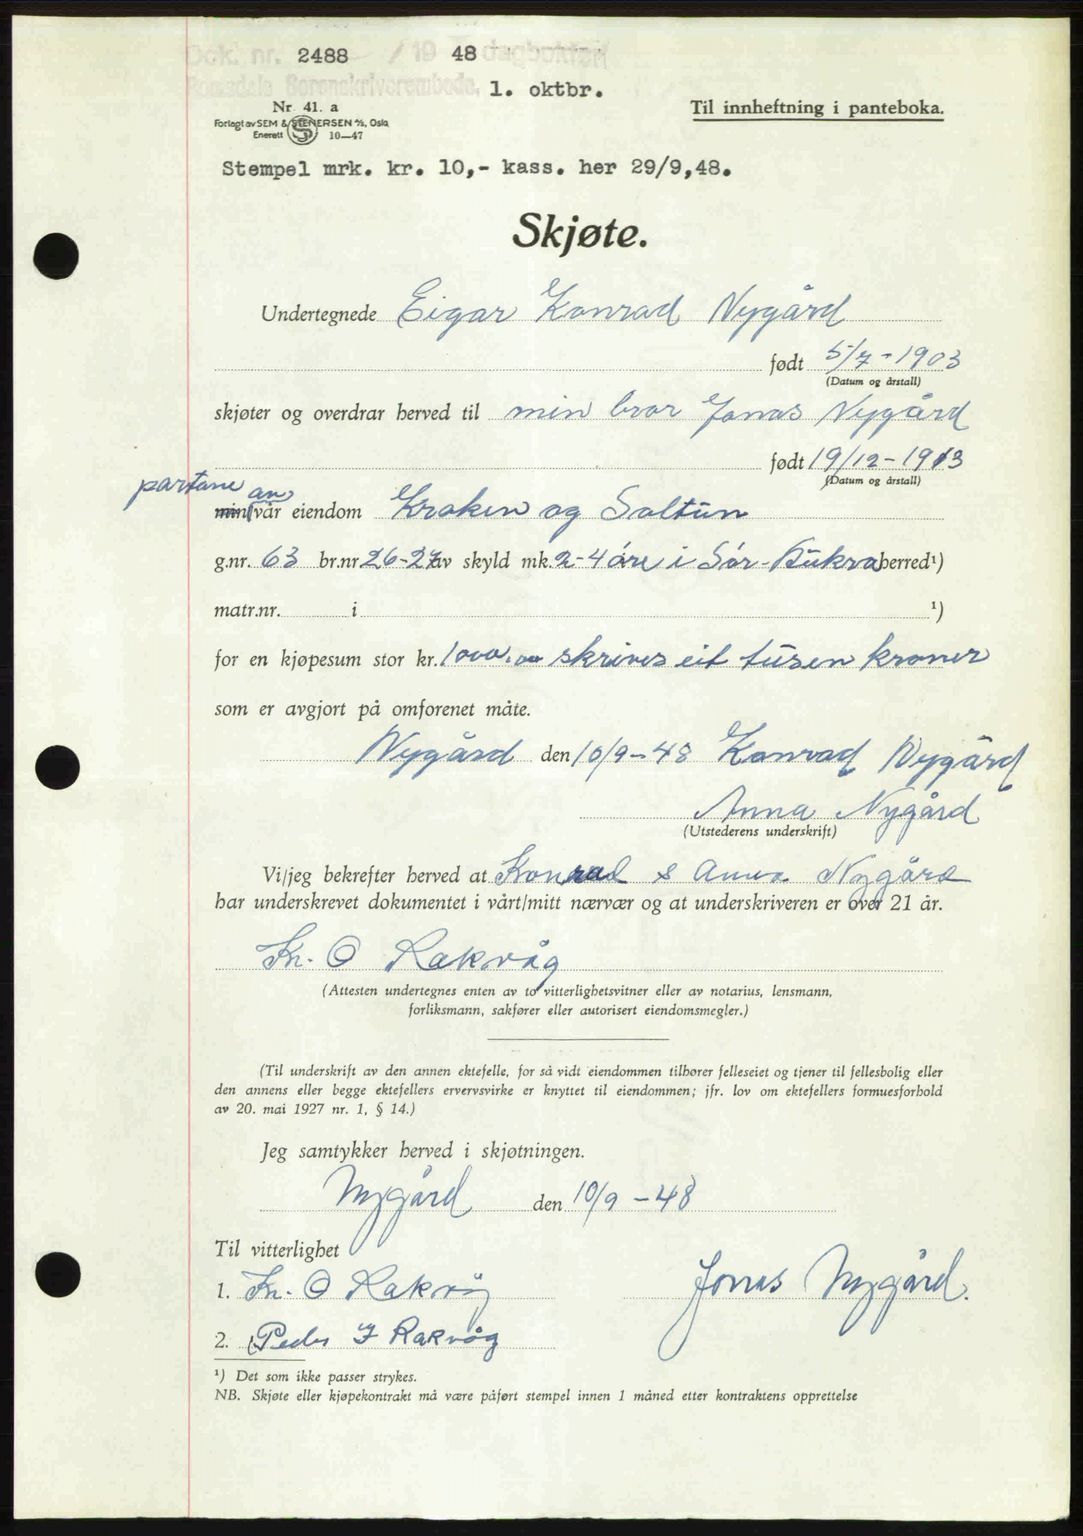 Dok. nr. 2488 / 19 48 dagbokført
Romsdals Sorenskriverembede, 1. oktbr.
Nr. 41. a
Forlagt av SEM & STENERSEN A/S, Oslo
Enerett 10—47
Til innheftning i panteboka.
Stempel mrk. kr. 10,- kass. her 29/9,48.
Skjøte.
Undertegnede Eigar Konrad Nygård
født 5/7-1903
(Datum og årstall)
skjøter og overdrar herved til min bror Jonas Nygård
født 19/12-1913
(Datum og årstall)
partane av
min/vår eiendom Kraken og Soltun
g.nr. 63 br.nr 26-27 av skyld mk. 2-4 øre i Sør-Aukra herred¹)
matr.nr. i ¹)
for en kjøpesum stor kr. 1000.00 skrives eit tusen kroner
som er avgjort på omforenet måte.
Nygård den 10/9-48 Konrad Nygård
Anna Nygård
(Utstederens underskrift)
Vi/jeg bekrefter herved at Konrad & Anna Nygård
har underskrevet dokumentet i vårt/mitt nærvær og at underskriveren er over 21 år.
Kr. O Rakvåg
(Attesten undertegnes enten av to vitterlighetsvitner eller av notarius, lensmann,
forliksmann, sakfører eller autorisert eiendomsmegler.)
(Til underskrift av den annen ektefelle, for så vidt eiendommen tilhører felleseiet og tjener til fellesbolig eller
den annens eller begge ektefellers ervervsvirke er knyttet til eiendommen; jfr. lov om ektefellers formuesforhold
av 20. mai 1927 nr. 1, § 14.)
Jeg samtykker herved i skjøtningen.
Nygård den 10/9-48
Til vitterlighet
1. Kr. O Rakvåg Jonas Nygård.
2. Peder J Rakvåg
¹) Det som ikke passer strykes.
NB. Skjøte eller kjøpekontrakt må være påført stempel innen 1 måned etter kontraktens opprettelse